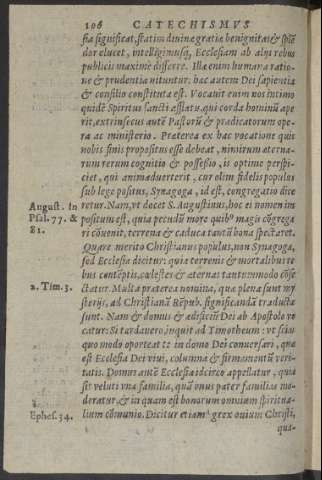 106 CATECHISMVS
sia significat, statim diuinæ gratiæ benignitas & splē
dor elucet, intelligimusq́; Ecclesiam ab alijs rebus
publicis maximè differre. Illæ enim humana ratio-
ne & prudentia nituntur: hæc autem Dei sapientia
& consilio constituta est. Vocauit enim nos intimo
quidē Spiritus sancti afflatu, qui corda hominū ape
rit, extrinsecus autē Pastorū & prædicatorum ope-
ra ac ministerio. Præterea ex hac vocatione quis
nobis finis propositus esse debeat, nimirum æterna-
rum rerum cognitio & possessio, is optimè perspi-
ciet, qui animaduerterit, cur olim fidelis populus
sub lege positus, Synagoga, id est, congregatio dice
August. in
Psal. 77. &
81.
retur. Nam, vt docet S. Augustinus, hoc ei nomen im
positum est, quia pecudū more quibꝰ magis cōgrega
ri cōuenit, terrena & caduca tantū bona spectaret.
Quare meritò Christianus populus, non Synagoga,
sed Ecclesia dicitur: quia terrenis & mortalibus re
bus contēptis, cœlestes & æternas tantummodo cōse
2. Tim. 3.
ctatur. Multa præterea nomina, quæ plena sunt my
sterijs, ad Christianā Rēpub. significandū traducta
sunt. Nam & domus & ædificiū Dei ab Apostolo vo
catur: Si tardauero, inquit ad Timotheum: vt scias
quo modo oporteat te in domo Dei conuersari, quæ
est Ecclesia Dei viui, columna & firmamentū veri-
tatis. Domus autē Ecclesia idcirco appellatur, quia
sit veluti vna familia, quā vnus pater familias mo-
deratur, & in quam est bonorum omnium spiritua-
Ephes. 34.
lium cōmunio. Dicitur etiam grex ouium Christi,
qua-